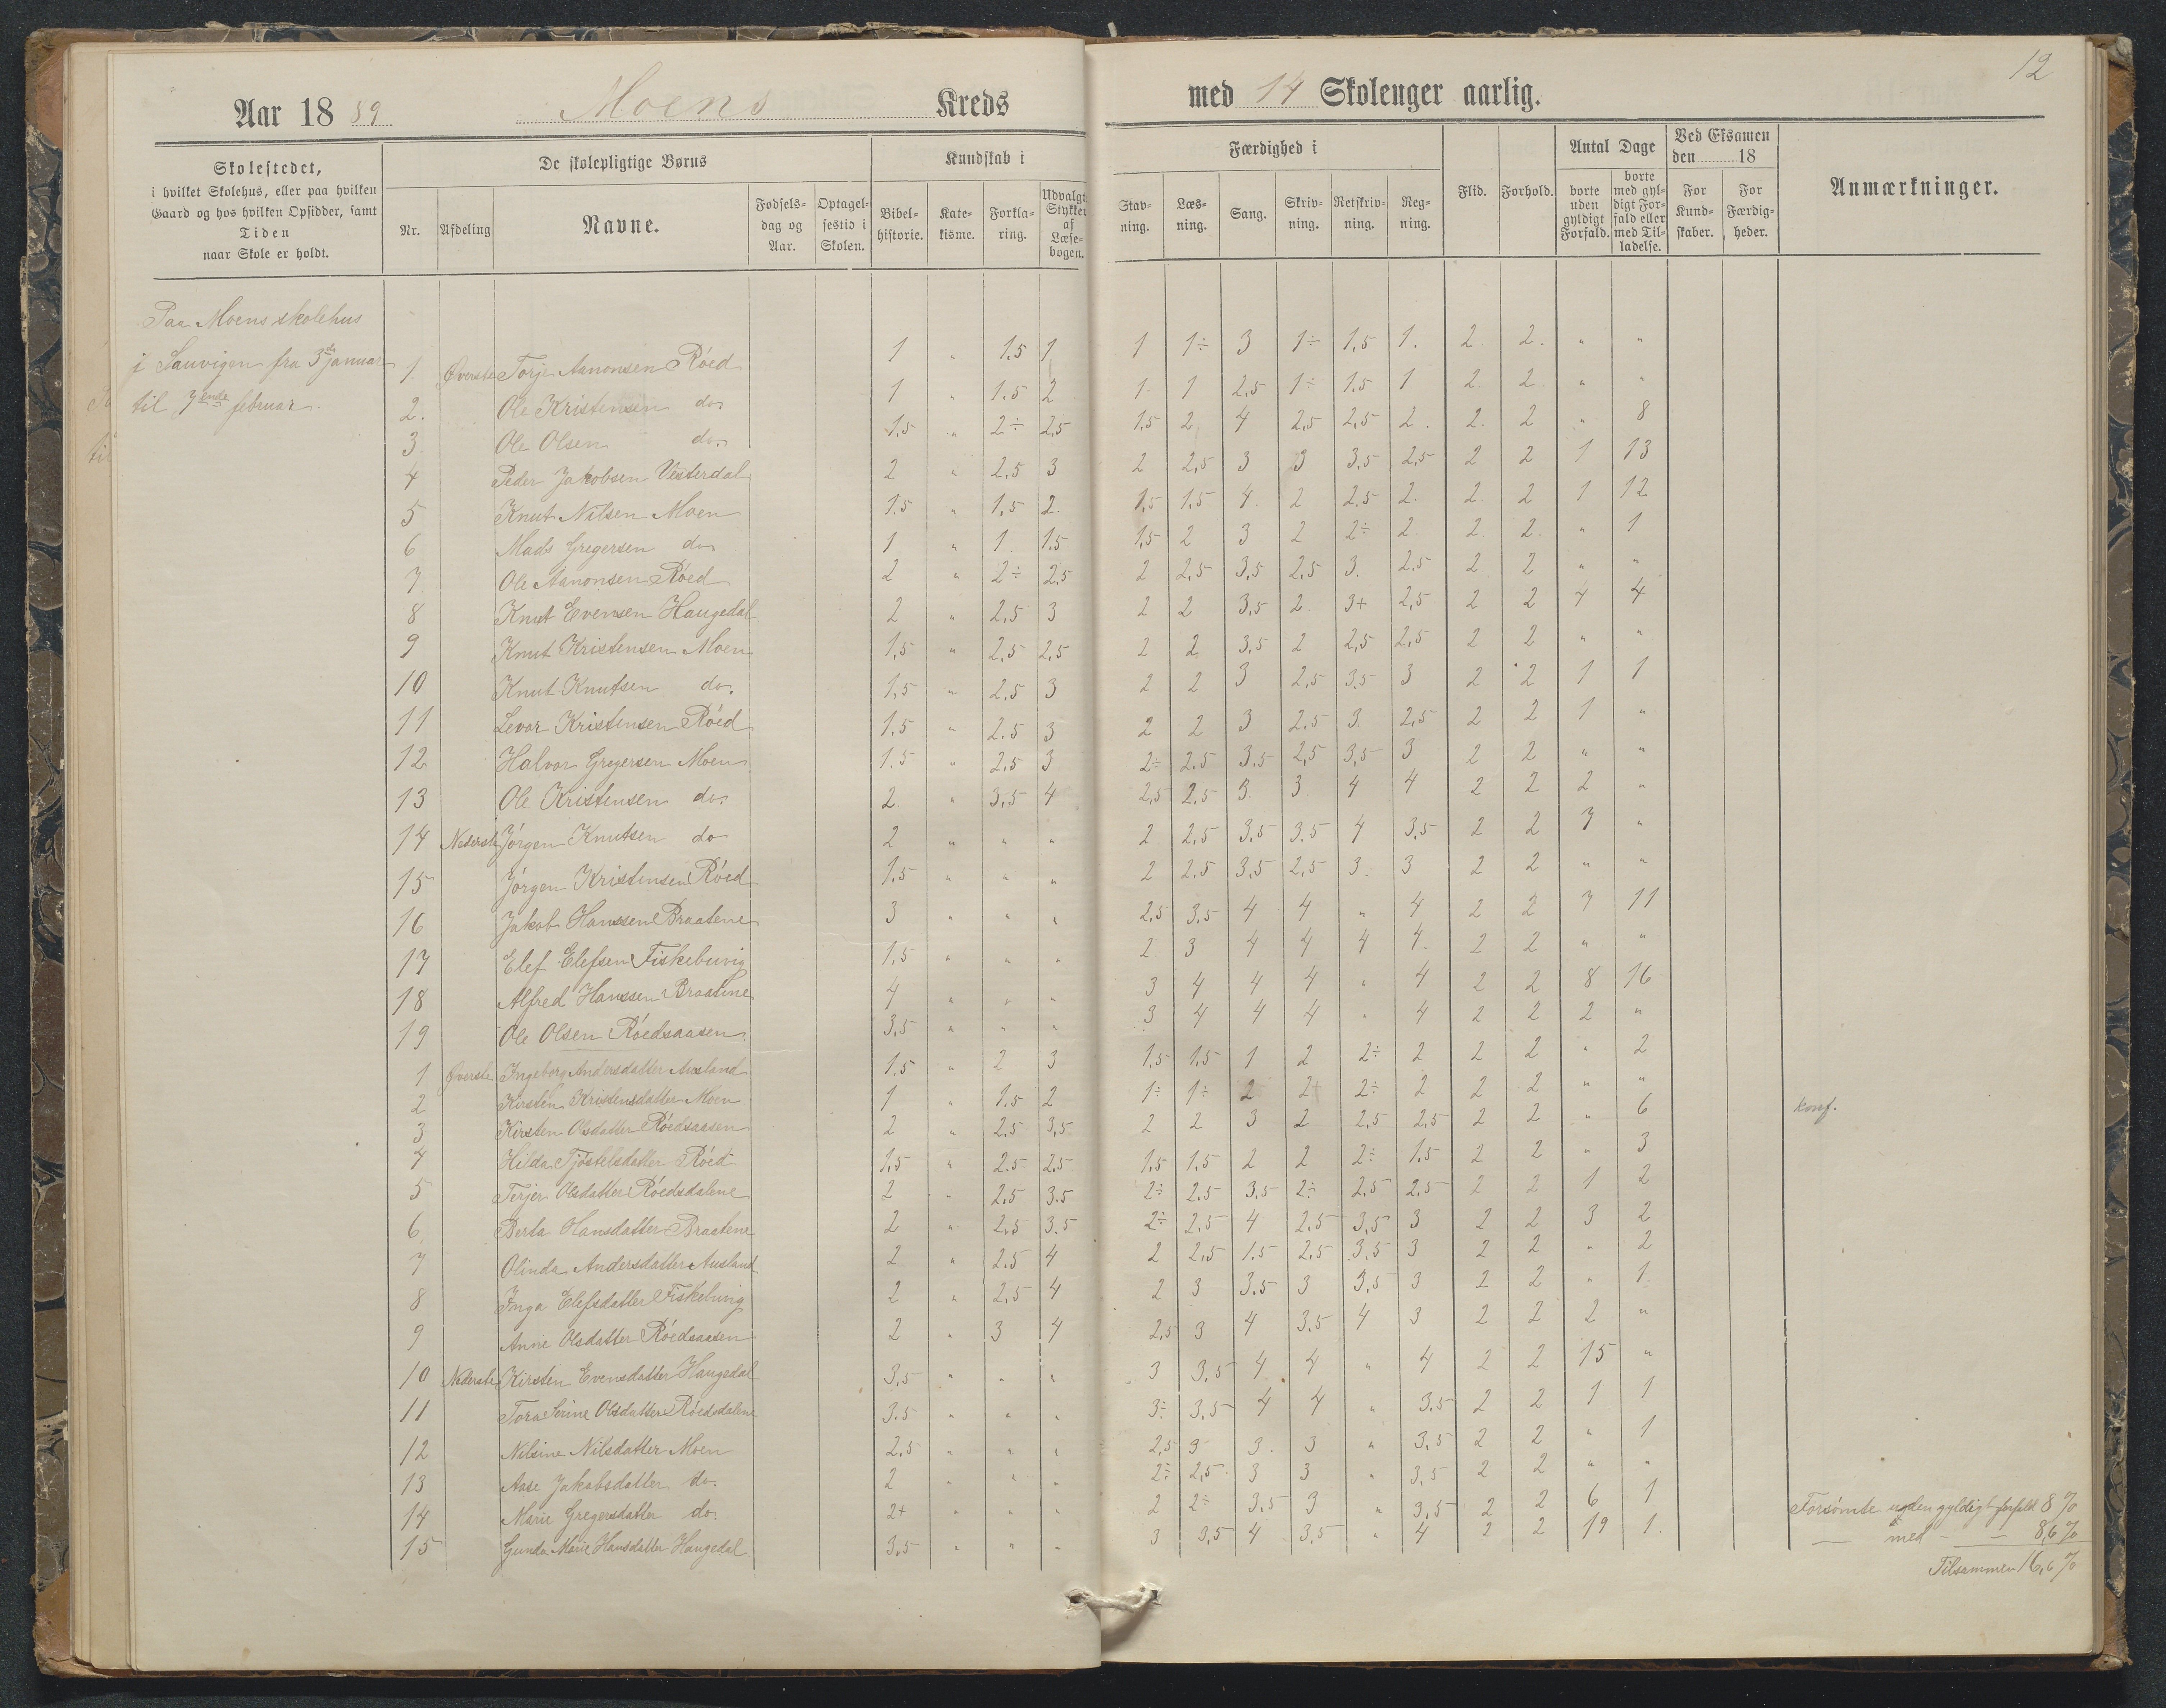 12
Aar 1889 Moens Kreds med 14 Skolenger aarlig.
Skolestedet, i hvilket Skolehus, eller paa hvilken Gaard og hos hvilken Opsidder, samt Tiden naar Skole er holdt.
De skolepligtige Børns
Nr. Afdeling Navne. Fødsels-dag og Aar. Optagel-sestid i Skolen.
Kundskab i
Bibel-historie. Kate-kisme. Forkla-ring. Udvalgte Stykker af Læse-bogen.
Færdighed i
Stav-ning. Læs-ning. Sang. Skriv-ning. Retskriv-ning. Reg-ning.
Flid. Forhold.
Antal Dage
borte uden gyldigt Forfald. borte med gyl-digt For-fald eller med Til-ladelse.
Ved Eksamen den 18
For Kund-skaber. For Færdig-heder.
Anmærkninger.
Paa Moens skolehus
i Sauvigen fra 3die januar
til 7ende februar.
1 Øverste Torje Aanonsen Røed 1 " 1.5 1 1 1÷ 3 1÷ 1,5 1. 2 2. " "
2. Ole Kristensen do. 1 " 1.5 2 1. 1 2,5 1÷ 1.5 1 2. 2 " "
3 Ole Olsen do. 1.5 " 2÷ 2,5 1.5 2 4 2,5 2,5 2. 2. 2 " 8
4 Peder Jakobsen Vesterdal 2 " 2.5 3 2 2,5 3 3 3,5 2,5 2 2 1 13
5 Knut Nilsen Moen 1.5 " 1,5 2. 1,5 1.5 4. 2 2.5 2. 2. 2 1 12
6 Mads Gregersen do. 1 " 1. 1.5 1,5 2 3 2 2÷ 2. 2. 2. " 1
7 Ole Aanonsen Røed 2 " 2÷ 2.5 2 2,5 3,5 2,5 3. 2.5 2 2 " "
8 Knut Evensen Haugedal 2 " 2,5 3 2 2 3,5 2 3+ 2,5 2 2 4 4
9 Knut Kristensen Moen 1,5 " 2,5 2,5 2 2 3,5 2 2,5 2,5 2 2 " "
10 Knut Knutsen do. 1,5 " 2,5 3 2 2 3 2,5 3.5 3 2 2 1 1
11 Levor Kristensen Røed 1.5 " 2.5 3 2 2 3 2.5 3. 2,5 2 2 1 "
12 Halvor Gregersen Moen 1.5 " 2.5 3 2÷ 2.5 3.5 2,5 3,5 3 2 2 " "
13 Ole Kristensen do. 2 " 3,5 4 2,5 2.5 3. 3. 4 4 2 2 2 "
14 Nederste Jørgen Knutsen do 2 " " " 2 2,5 3,5 3.5 4 3,5 2 2 7 "
15 Jørgen Kristensen Røed 1.5 " " " 2 2.5 3,5 2,5 3. 3 2 2 " "
16 Jakob Hanssen Braatene 3 " " " 2,5 3.5 4 4 " 4 2 2 7 11
17 Elef Elefsen Fiskebuvig 1,5 " " " 2 3 4 4 4 4. 2 2 " "
18 Alfred Hanssen Braatene 4 " " " 3 4 4 4 " 4 2 2 8 16
19 Ole Olsen Røedsaasen 3,5 " " " 3 4 4 4 " 4 2 2 2 "
1 Øverste Ingeborg Andersdatter Ausland 1.5 " 2 3 1.5 1.5 1 2 2÷ 2 2 2 " 2
2 Kirsten Kristensdatter Moen 1 " 1.5 2 1÷ 1÷ 2 2+ 2÷ 2 2 2 " "
3 Kirsten Olsdatter Røedsaasen 2 " 2.5 3,5 2 2 3 2 2,5 2,5 2 2 " 6 konf.
4 Hilda Tjøstelsdatter Røed 1,5 " 2.5 2.5 1,5 1.5 2 2 2÷ 1.5 2 2 " 3
5 Terjer Olsdatter Røedsdalene 2 " 2.5 3.5 2÷ 2.5 3.5 2÷ 2.5 2,5 2 2 1 2
6. Berta Hansdatter Braatene 2 " 2,5 3.5 2÷ 2.5 4 2.5 3,5 3 2 2 3 2
7 Olinda Andersdatter Ausland 2 " 2.5 4 2 2,5 1.5 2.5 3.5 3 2 2 " 2
8 Inga Elefsdatter Fiskebuvig 2 " 2,5 4 2 3 3.5 3 3,5 3 2 2 " 1
9 Anne Olsdatter Røedsaasen 2 " 3 4 2,5 3 4 3.5 4 3 2 2 2 "
10 Nederste Kirsten Evensdatter Haugedal 3,5 " " " 3 3,5 4 4 " 4 2 2 15 "
11 Tora Serine Olsdatter Røedsdalene 3.5 " " " 3÷ 3,5 4 4 " 3.5 2 2 1 1
12 Nilsine Nilsdatter Moen 2,5 " " " 2,5 3 3. 3 " 3,5 2 2 " 1
13 Aase Jakobsdatter do. 2 " " " 2÷ 2,5. 3 3 " 3,5 2 2 " "
14 Marie Gregersdatter do. 2+ " " " 2 2÷ 3.5 3 " 3,5 2 2 6 1
15 Gunda Marie Hansdatter Haugedal 3,5 " " " 3 3,5 4 3.5 " 4 2 2 19 1.
Forsømte uden gyldigt forfald 8 %
— med — — 8,6 %
Tilsammen 16,6 %